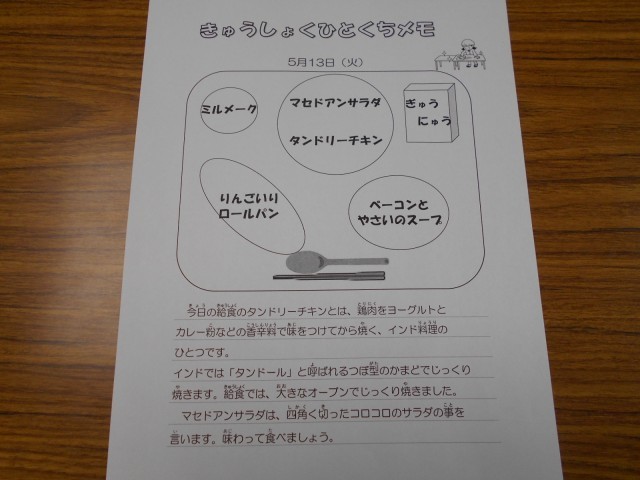 きゅうしょくひとくちメモ
5月13日（火）
ミルメーク
マセドアンサラダ
タンドリーチキン
ぎゅう
にゅう
りんごいり
ロールパン
ベーコンと
やさいのスープ
今日の給食のタンドリーチキンとは、鶏肉をヨーグルトと
カレー粉などの香辛料で味をつけてから焼く、インド料理の
ひとつです。
インドでは「タンドール」と呼ばれるつぼ型のかまどでじっくり
焼きます。給食では、大きなオーブンでじっくり焼きました。
マセドアンサラダは、四角く切ったコロコロのサラダの事を
言います。味わって食べましょう。